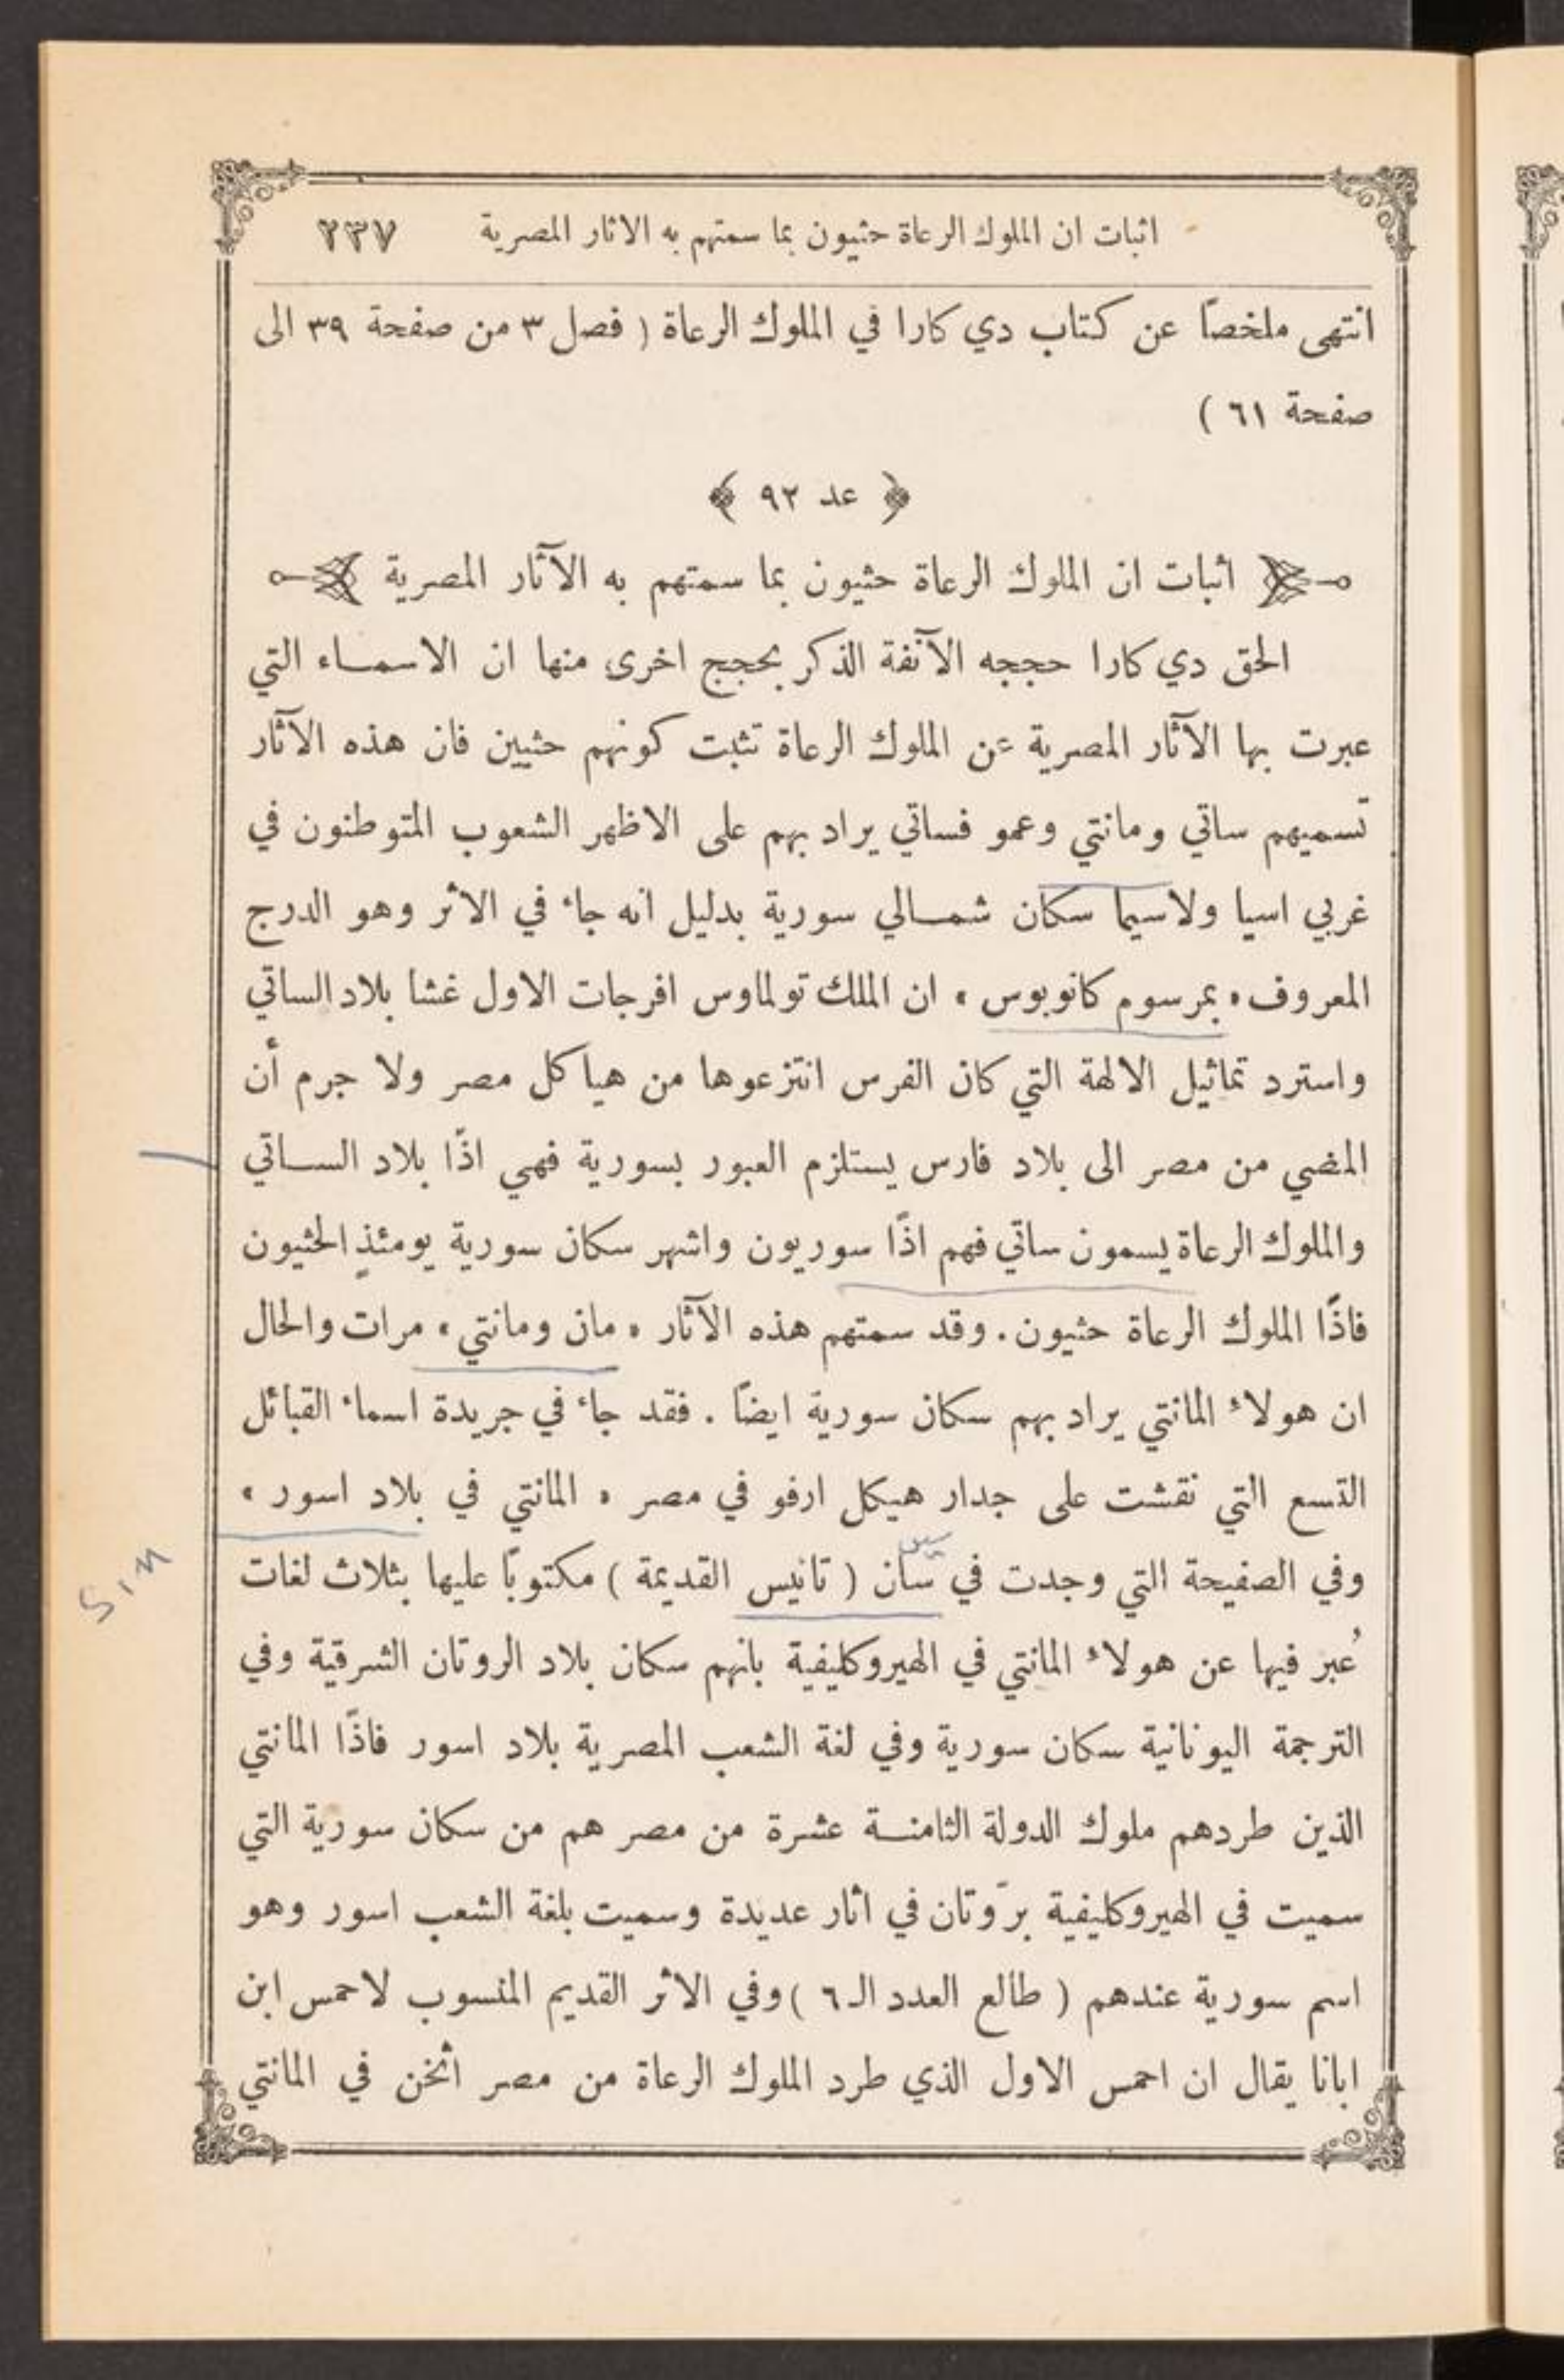 اثبات ان الملوك الرعاة حثيون بما سمتهم به الاثار المصرية ٢٣٧
انتهى ملخصاً عن كتاب دي كارا في الملوك الرعاة ( فصل ٣ من صفحة ٣٩ الى
صفحة ٦١ )
﴿ عد ٩٢ ﴾
اثبات ان الملوك الرعاة حثيون بما سمتهم به الآثار المصرية
الحق دي كارا حججه الآنفة الذكر بحجج اخرى منها ان الاسماء التي
عبرت بها الآثار المصرية عن الملوك الرعاة تثبت كونهم حثيين فان هذه الآثار
تسميهم ساتي ومانتي وعمو فساتي يراد بهم على الاظهر الشعوب المتوطنون في
غربي اسيا ولاسيما سكان شمالي سورية بدليل انه جاء في الاثر وهو الدرج
المعروف « بمرسوم كانوبوس » ان الملك تولماوس افرجات الاول غشا بلاد الساتي
واسترد تماثيل الالهة التي كان الفرس انتزعوها من هياكل مصر ولا جرم أن
المضي من مصر الى بلاد فارس يستلزم العبور بسورية فهي اذًا بلاد الساتي
والملوك الرعاة يسمون ساتي فهم اذًا سوريون واشهر سكان سورية يومئذٍ الحثيون
فاذًا الملوك الرعاة حثيون . وقد سمتهم هذه الآثار « مان ومانتي » مرات والحال
ان هولاء المانتي يراد بهم سكان سورية ايضاً . فقد جاء في جريدة اسماء القبائل
التسع التي نقشت على جدار هيكل ارفو في مصر « المانتي في بلاد اسور »
وفي الصفيحة التي وجدت في سان ( تانيس القديمة ) مكتوبًا عليها بثلاث لغات
Sin
عُبر فيها عن هولاء المانتي في الهيروكليفية بانهم سكان بلاد الروتان الشرقية وفي
الترجمة اليونانية سكان سورية وفي لغة الشعب المصرية بلاد اسور فاذًا المانتي
الذين طردهم ملوك الدولة الثامنة عشرة من مصر هم من سكان سورية التي
سميت في الهيروكليفية برّوتان في اثار عديدة وسميت بلغة الشعب اسور وهو
اسم سورية عندهم ( طالع العدد الـ ٦ ) وفي الاثر القديم المنسوب لاحمس ابن
ابانا يقال ان احمس الاول الذي طرد الملوك الرعاة من مصر أثخن في المانتي